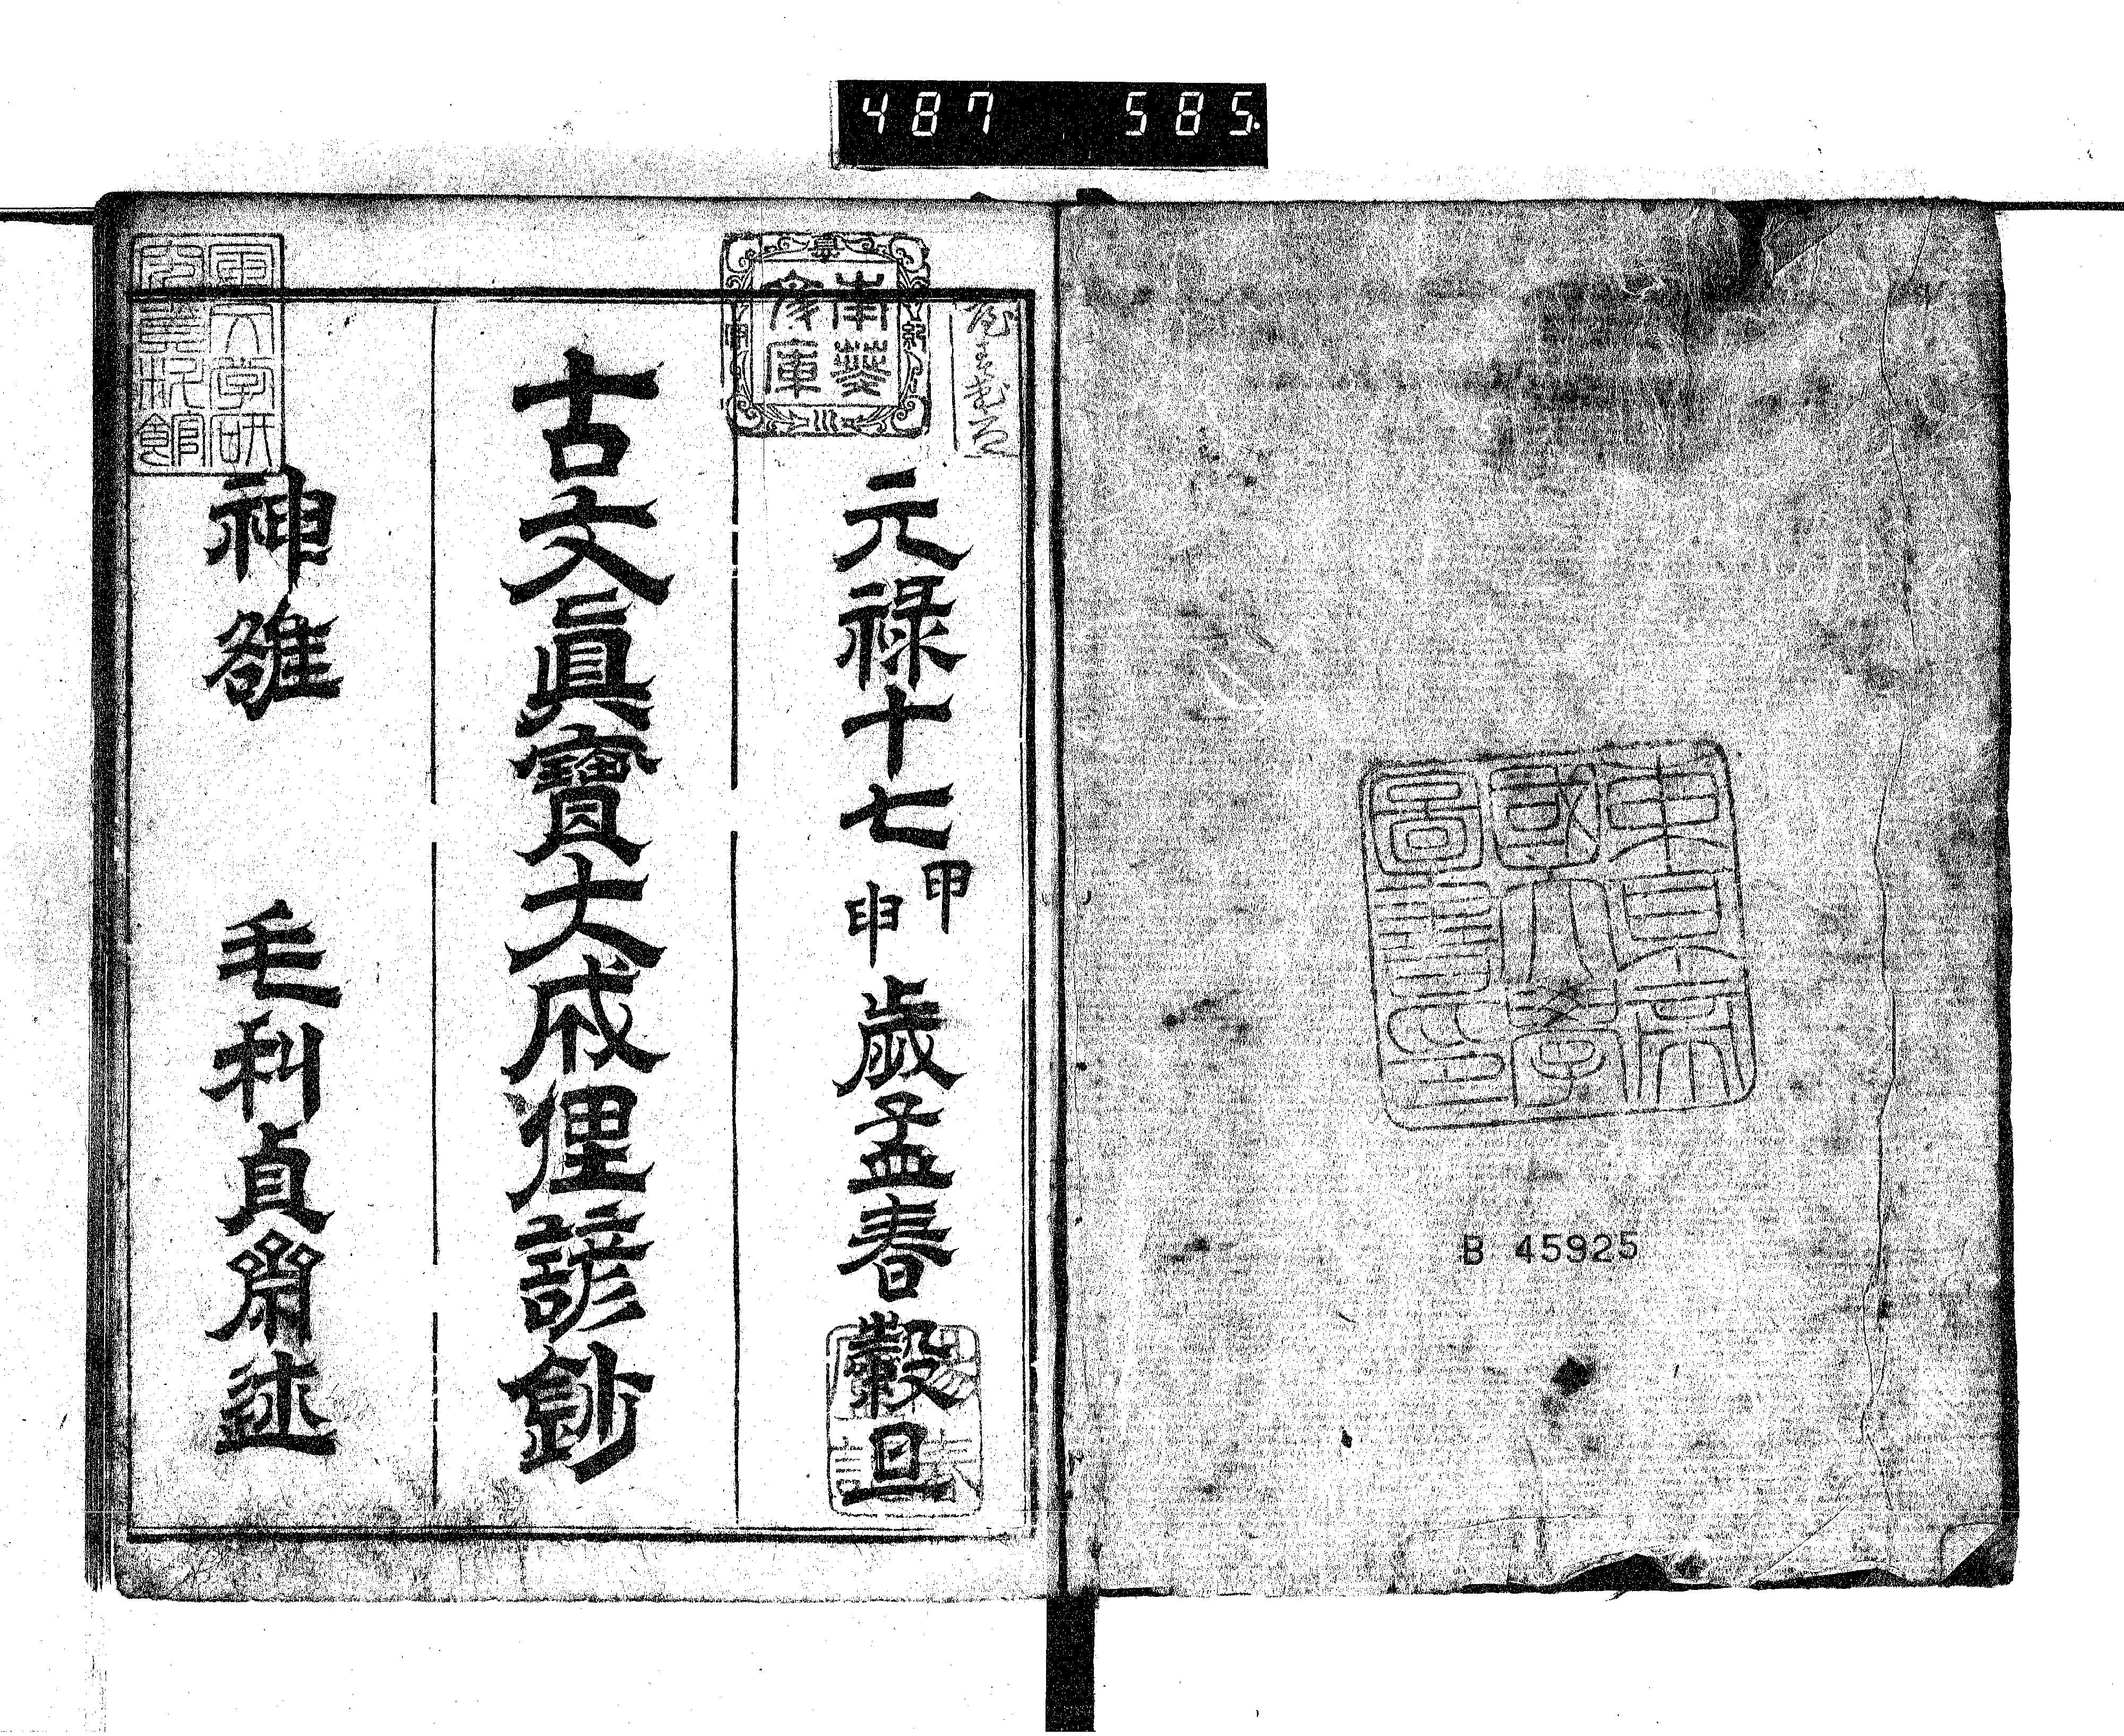 487 585
東京帝
國大學
圖書印
B 45925
南葵
文庫
元禄十七甲申歳孟春穀旦
古文眞寶大成俚諺鈔
神雒 毛利貞齋述